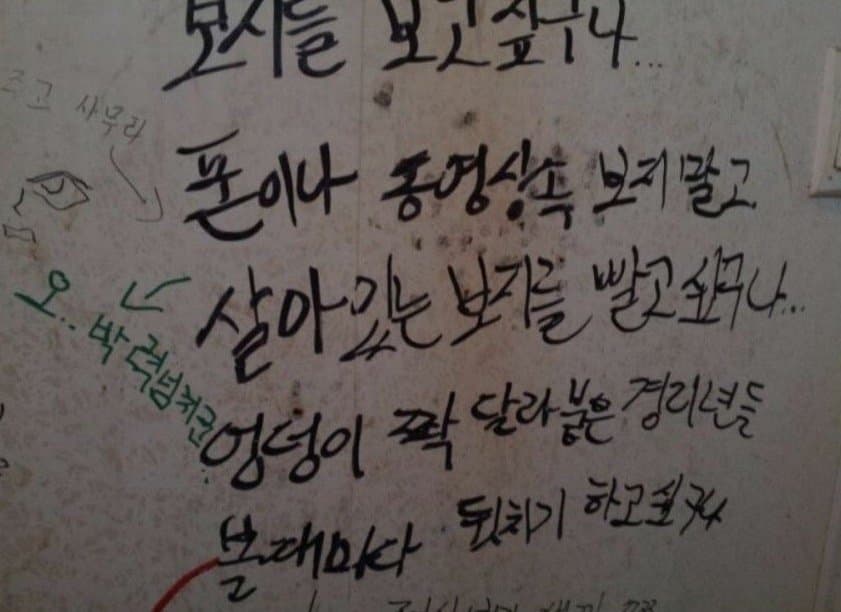 보지를 보고싶구나...
즈고 사무라
폰이나 동영상속 보지말고
살아있는 보지를 빨고싶구나...
오.. 박력넘치군
엉덩이 쫙 달라붙은 경리년들
볼때마다 뒷치기 하고싶구나